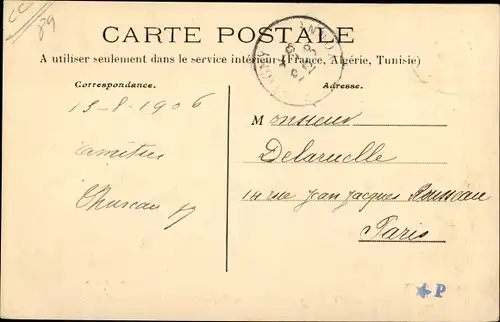 CARTE POSTALE
A utiliser seulement dans le service intérieur (France, Algérie, Tunisie)
Correspondance.
Adresse.
13-8-1906
Amitiés
Monsieur
Delaruelle
14 rue Jean Jacques Rousseau
Paris
P